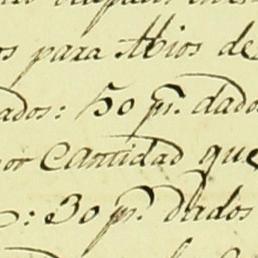 os para Mios de
ados: 50 ps. dados
or Cantidad que
: 30 ps. dados